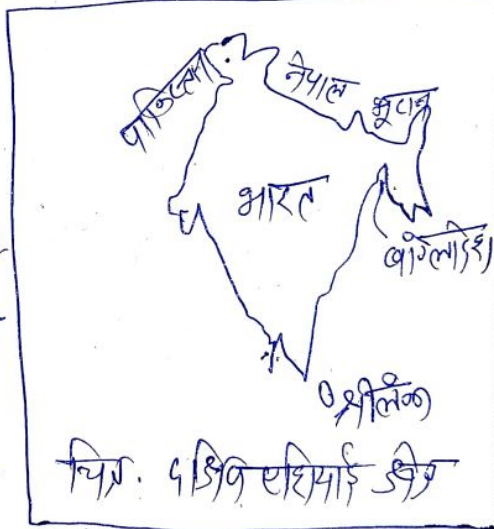 पाकिस्तान
नेपाल
भूटान
भारत
बांग्लादेश
श्रीलंका
चित्र. दक्षिण एशियाई क्षेत्र